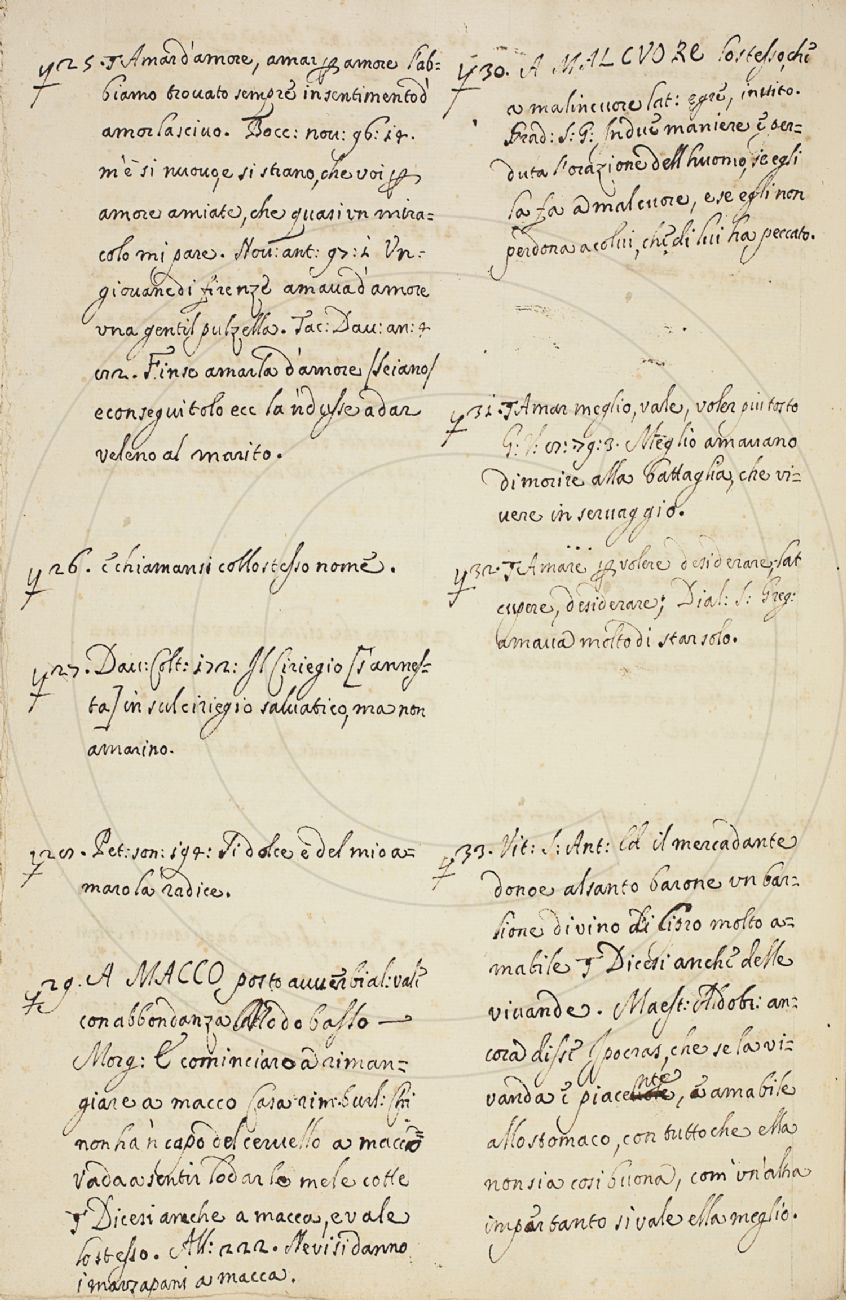 25. ¶ Amar d'amore, amar ꝑ amore l'ab=
biamo trouato sempre in sentimento d'
amor lasciuo. Bocc: nou: 96: 14.
m'è sì nuouo, e sì strano, che voi ꝑ
amore amiate, che quasi vn mira=
colo mi pare. Nou: ant: 97: 1 Vn=
giouane di firenze amaua d'amore
vna gentil pulzella. Tac: Dau: an: 4
82. Finse amarla d'amore [Seiano]
e conseguitolo ecc la 'ndusse a dar
veleno al marito.
26. e chiamansi collo stesso nome.
27. Dau: Colt: 172: Il Ciriegio [s'annes=
ta] in sul ciriegio saluatico, ma non
amarino.
28. Pet: son: 194: Sì dolce è del mio a=
maro la radice.
29. A MACCO posto auuerbial: vale
con abbondanza
Morg: E cominciaro a riman=
giare a macco Casa rim: burl: Chi
non ha 'n capo del ceruello a macco
Vada a sentir lodar le mele cotte
¶ Dicesi anche a macca, e vale
lo stesso. All: 222. Ne vi si danno
i marzapani a macca.
30. A MALCVORE lo stesso, che
a malincuore lat: egre, inuito.
Grad: S: G: In due maniere è per=
duta l'orazione dell'huomo, se egli
la fa a malcuore, e se egli non
perdona a colui, che di lui ha peccato.
31. ¶ Amar meglio, vale, voler piu tosto
G: V: 8: 79: 3. Meglio amauano
di morire alla battaglia, che vi=
uere in seruaggio.
32. ¶ Amare ꝑ volere desiderare, lat
cupere, desiderare; Dial: S: Greg:
amaua molto di star solo.
33. Vit: S: Ant: Ed il mercadante
donoe al santo barone vn bar=
lione di vino di Cipro molto a=
mabile ¶ Dicesi anche delle
viuande. Maest: Aldobr: an=
cora disse Ipocras, che se la vi=
vanda è piacente, e amabile
allo stomaco, con tutto che ella
non sia così buona, com' vn'altra
impertanto si vale ella meglio.